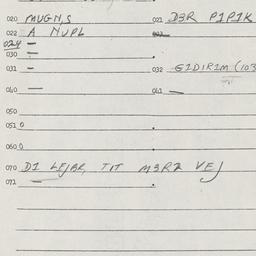 020 MUGN,S 021 D3R P1P1K
022 A NUPL
024 —
030 —
031 - 032 GIDIRIM (103
040 — 041 —
050
051 0
060 0
070 DI LEJBR, TIT M3RZ VEJ
071 —